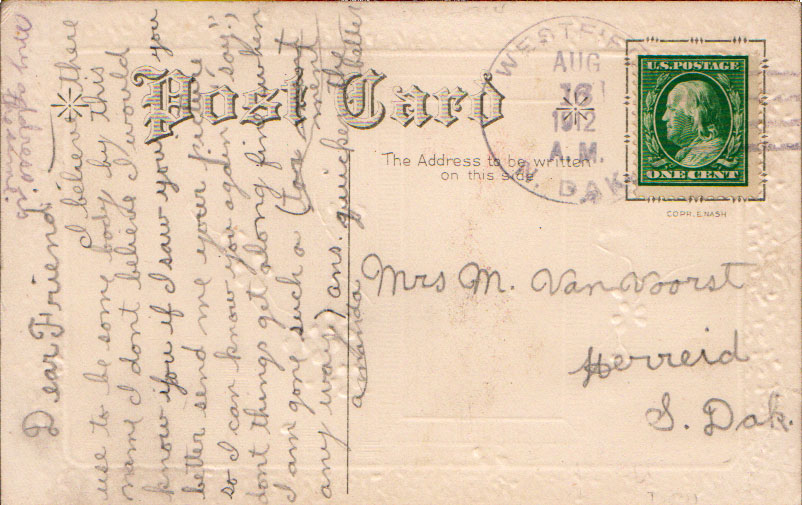 Post Card
The Address to be written
on this side
WESTFIELD
AUG
16
1912
A.M.
N. DAK.
U.S. POSTAGE
ONE CENT
COPR. E. NASH
Mrs M. Van Voorst
Herreid
S. Dak.
Dear Friend:
I believe there
use to be some body by this
name I dont believe I would
know you if I saw you you
better send me your picture
so I can know you again "say",
dont things get along fine when
I am gone such a (
any way) ans. quicker the
better
Amanda
My address is